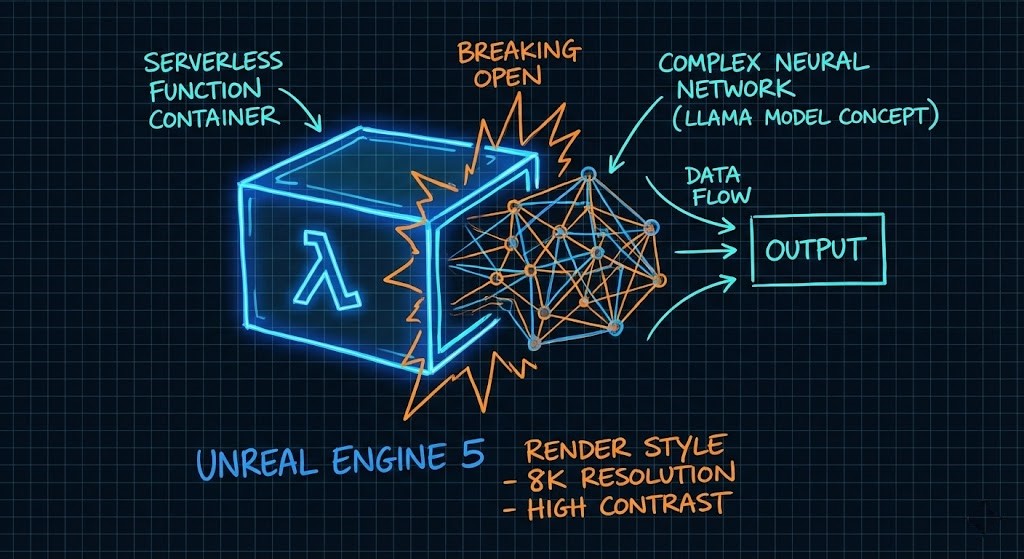 SERVERLESS
FUNCTION
CONTAINER
BREAKING
OPEN
COMPLEX NEURAL
NETWORK
(LLAMA MODEL CONCEPT)
λ
DATA
FLOW
OUTPUT
UNREAL ENGINE 5
RENDER STYLE
- 8K RESOLUTION
- HIGH CONTRAST